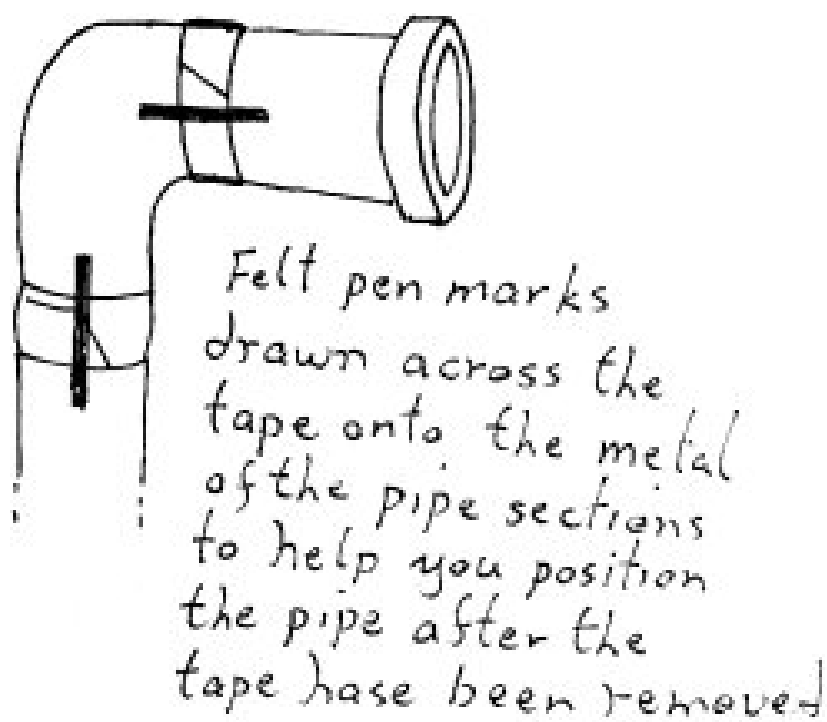 Felt pen marks
drawn across the
tape onto the metal
of the pipe sections
to help you position
the pipe after the
tape hase been removed